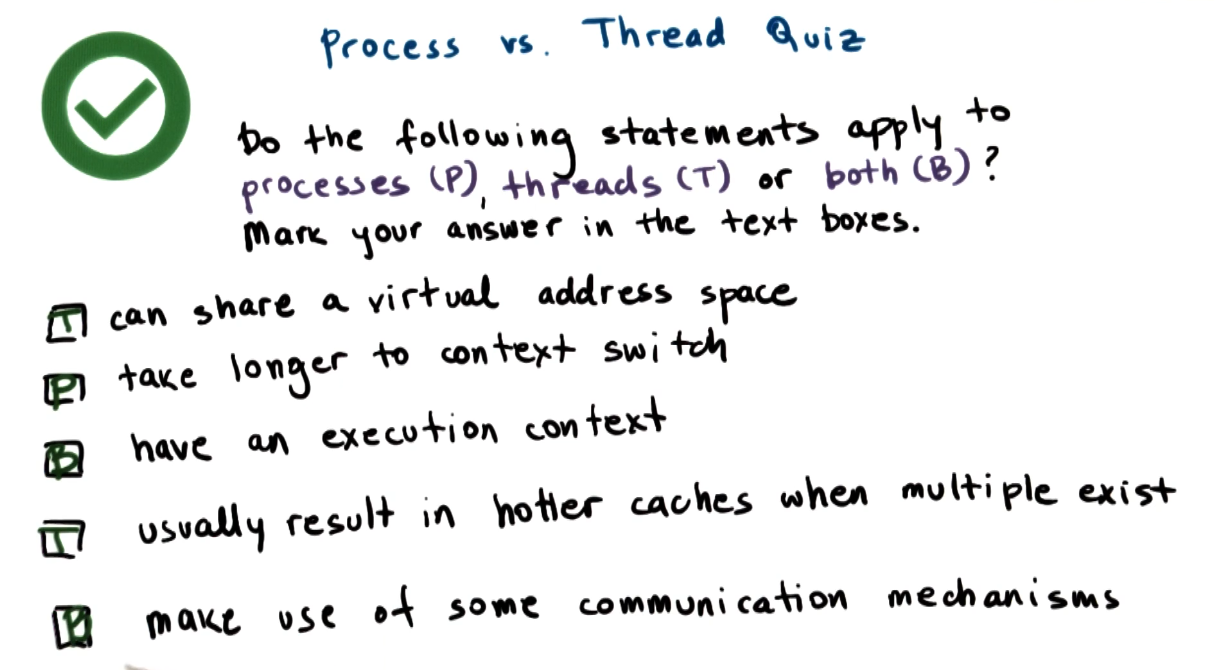 Process vs. Thread Quiz
Do the following statements apply to
processes (P), threads (T) or both (B)?
Mark your answer in the text boxes.
T can share a virtual address space
P take longer to context switch
B have an execution context
T usually result in hotter caches when multiple exist
make use of some communication mechanisms